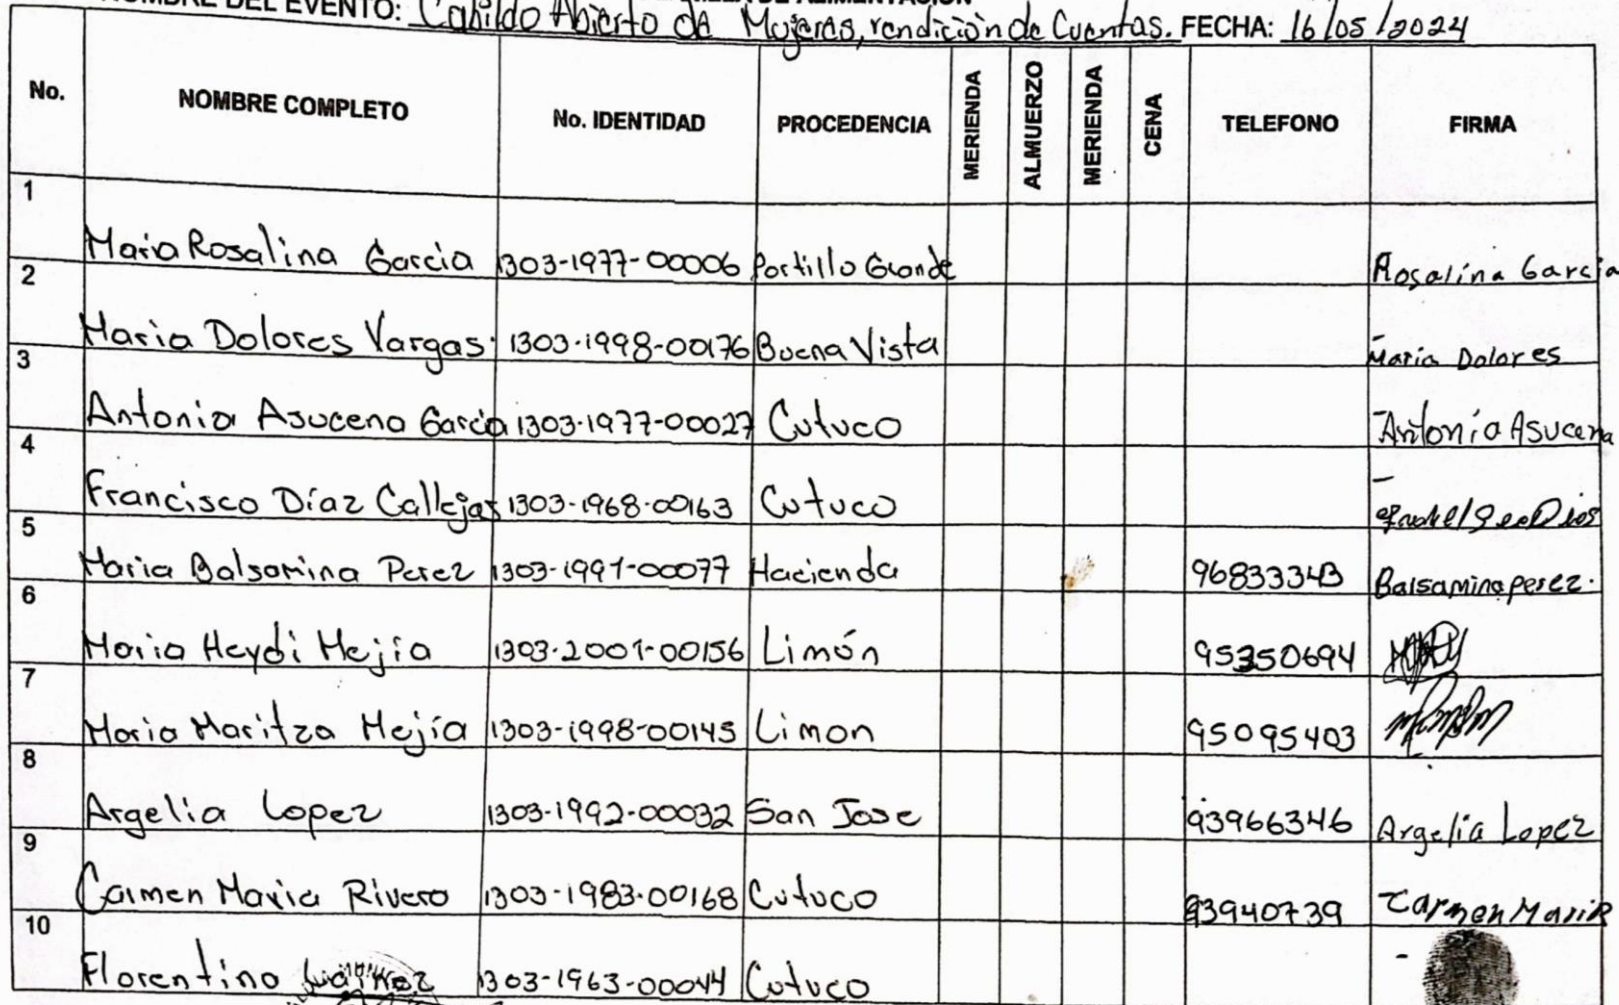 NOMBRE DEL EVENTO: Cabildo Abierto de Mujeres, rendición de Cuentas. FECHA: 16/05/2024
No. NOMBRE COMPLETO No. IDENTIDAD PROCEDENCIA MERIENDA ALMUERZO MERIENDA CENA TELEFONO FIRMA
1 Maria Rosalina Garcia 1303-1977-00006 Portillo Grande Rosalina Garcia
2 Maria Dolores Vargas 1303-1998-00176 Buena Vista Maria Dolores
3 Antonia Asucena Garcia 1303-1977-00027 Cutuco Antonia Asucena
4 Francisco Díaz Callejas 1303-1968-00163 Cutuco
5 Maria Balsamina Perez 1303-1991-00077 Hacienda 96833343 Balsamina perez.
6 Maria Heydi Mejía 1303-2001-00156 Limón 95350694
7 Maria Maritza Mejía 1303-1998-00145 Limon 95095403
8 Argelia Lopez 1303-1992-00032 San Jose 93966346 Argelia Lopez
9 Carmen Maria Rivera 1303-1983-00168 Cutuco 93940739 Carmen Maria R
10 Florentino 1303-1963-00044 Cutuco